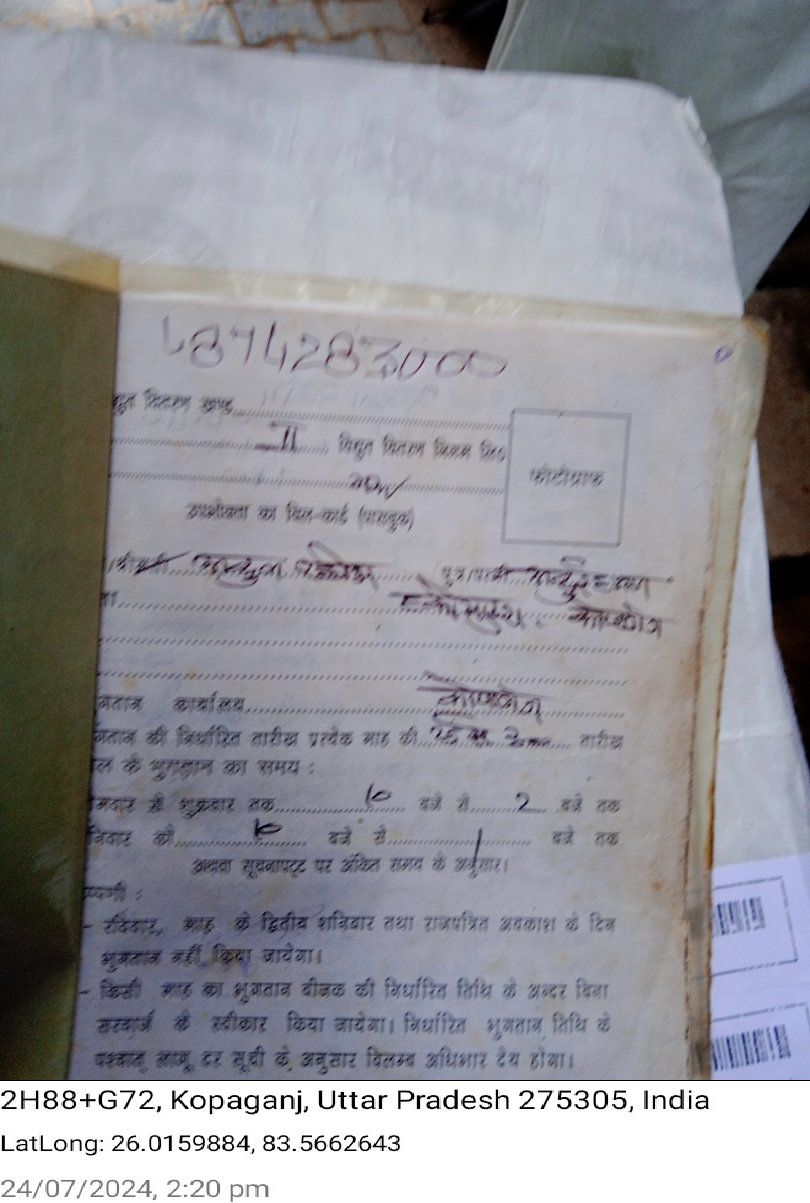 874283000
द्युत वितरण खण्ड
II विद्युत वितरण निगम लि०
फोटोग्राफ
उपभोक्ता का बिल-कार्ड (पासबुक)
/श्रीमती पुत्र/पत्नी
ता
कोपागंज
गतान कार्यालय कोपागंज
गतान की निर्धारित तारीख प्रत्येक माह की तारीख
ल के भुगतान का समय :
मवार से शुक्रवार तक 10 बजे से 2 बजे तक
निवार को 10 बजे से 1 बजे तक
अथवा सूचनापट्ट पर अंकित समय के अनुसार।
प्पणी :
- रविवार, माह के द्वितीय शनिवार तथा राजपत्रित अवकाश के दिन
भुगतान नहीं किया जायेगा।
- किसी माह का भुगतान बीजक की निर्धारित तिथि के अन्दर बिना
सरचार्ज के स्वीकार किया जायेगा। निर्धारित भुगतान तिथि के
पश्चात् लागू दर सूची के अनुसार विलम्ब अधिभार देय होगा।
2H88+G72, Kopaganj, Uttar Pradesh 275305, India
LatLong: 26.0159884, 83.5662643
24/07/2024, 2:20 pm